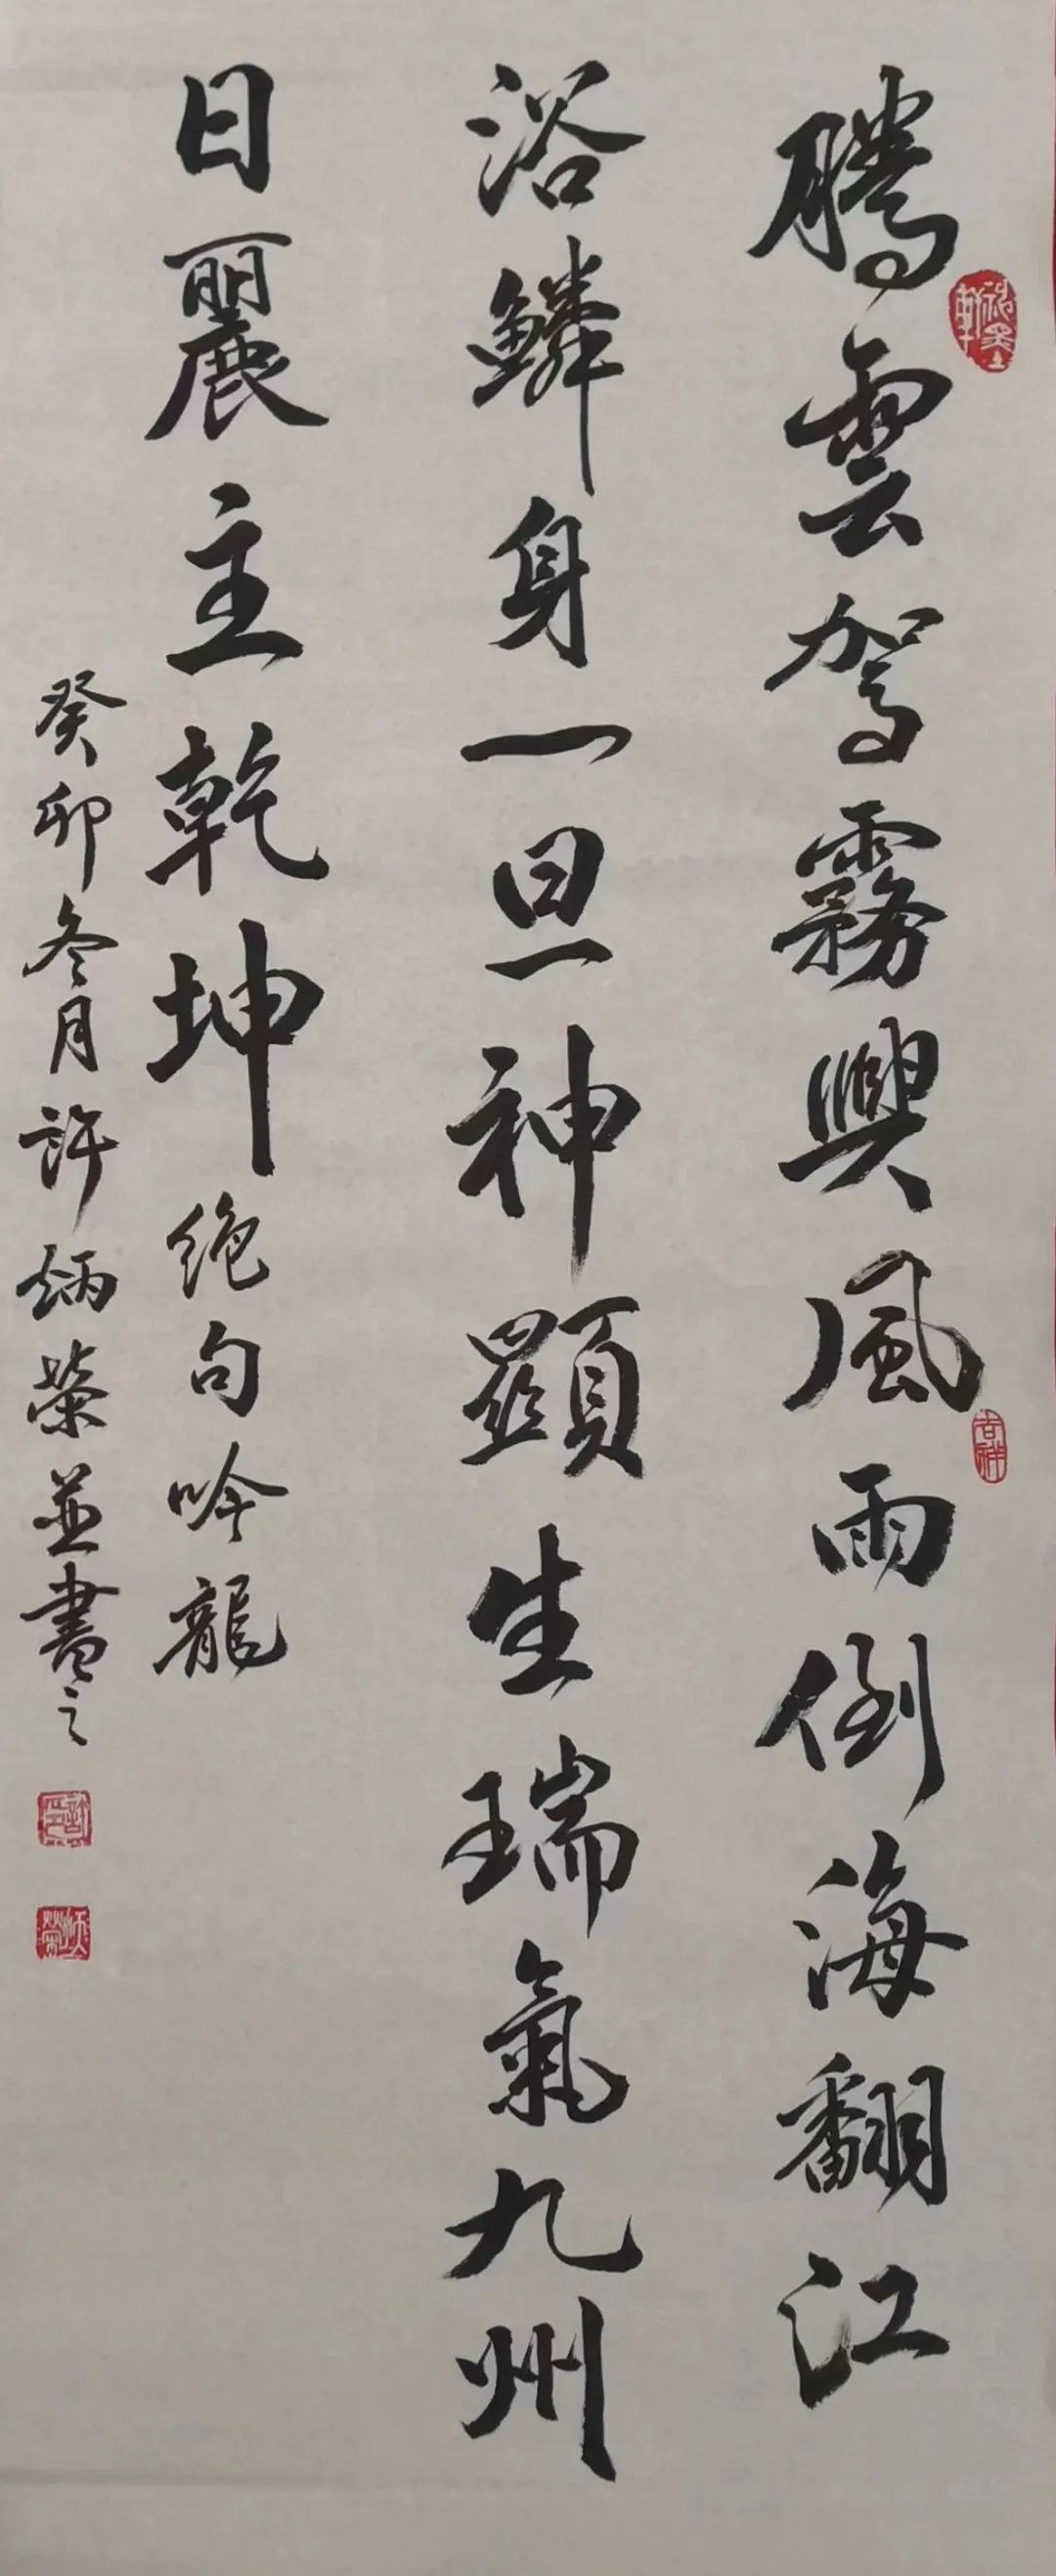 騰雲駕霧興風雨倒海翻江
浴鱗身一旦神顯生瑞氣九州
日麗主乾坤 絶句吟龍
癸卯冬月許炳榮並書之
許印
炳榮